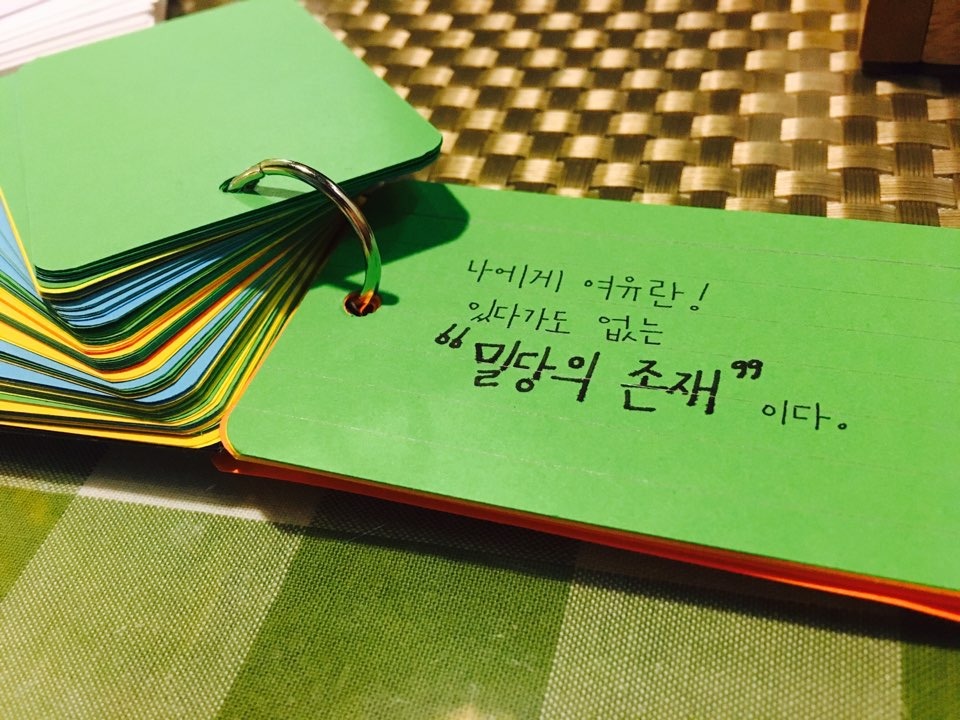 나에게 여유란!
있다가도 없는
"밀당의 존재" 이다.